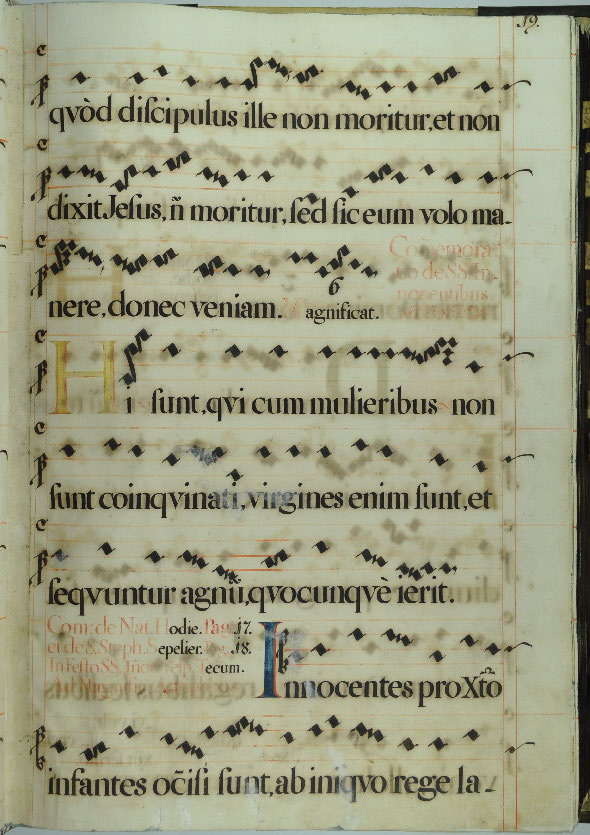 19.
qvòd discipulus ille non moritur, et non
dixit Jesus, ñ moritur, sed sic eum volo ma-
nere, donec veniam.
6
agnificat.
Hi sunt, qvi cum mulieribus non
sunt coinqvinati, virgines enim sunt, et
seqvuntur agnū, qvocunqvè ierit.
Com: de Nat. Hodie. Pag. 17.
et de S. Steph. Sepelier. 18.
ecum.
Innocentes pro Xt̃o
infantes oc̃isi sunt, ab iniqvo rege la-